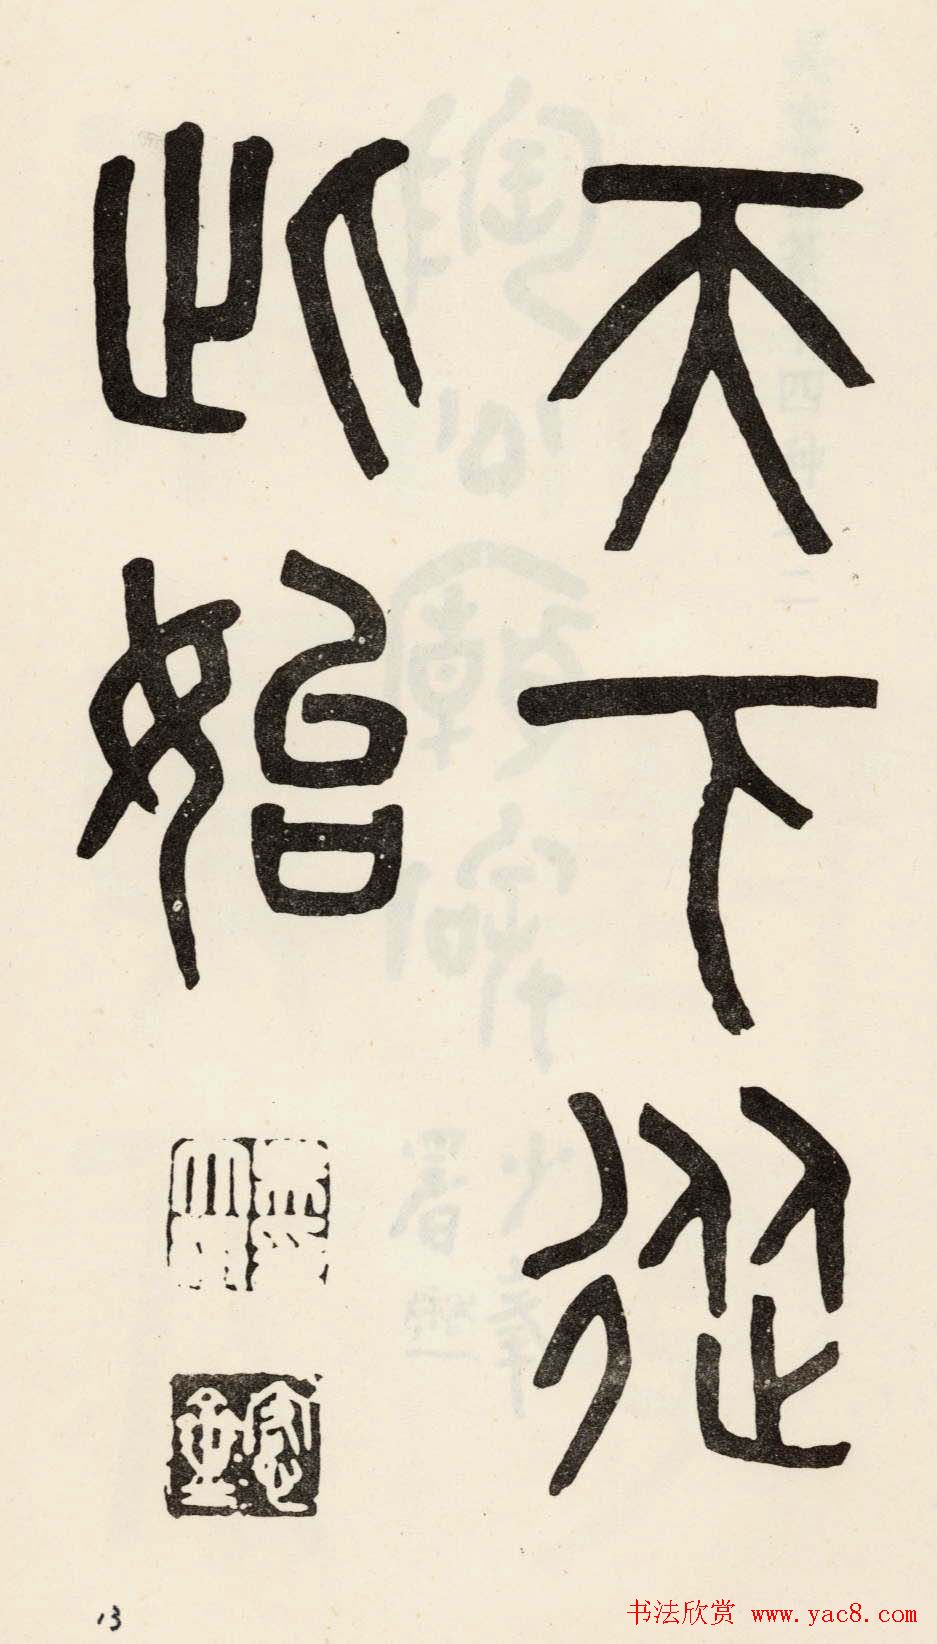 天下從
此始
13
书法欣赏 www.yac8.com